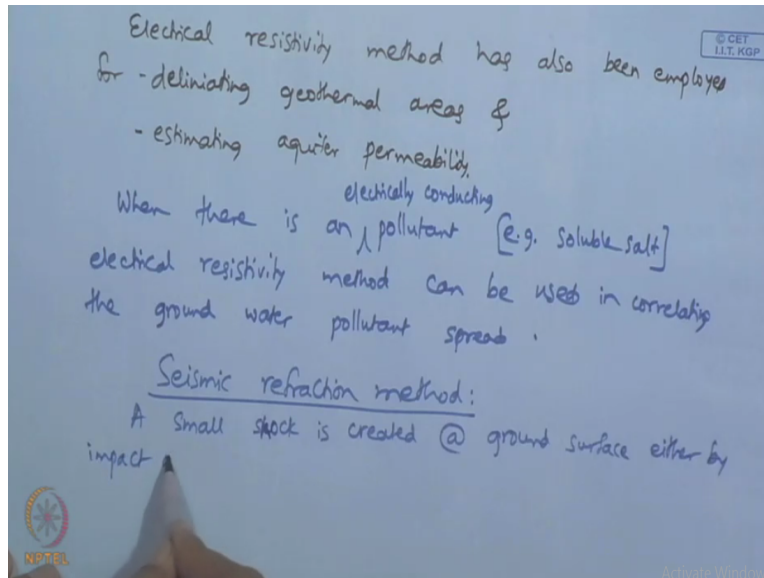 Electrical resistivity method has also been employed
© CET
I.I.T. KGP
for - deliniating geothermal areas &
- estimating aquifer permeability.
electrically conducting
When there is an pollutant [e.g. soluble salt]
electrical resistivity method can be used in correlating
the ground water pollutant spread.
Seismic refraction method:
A small shock is created @ ground surface either by
impact
NPTEL
Activate Window